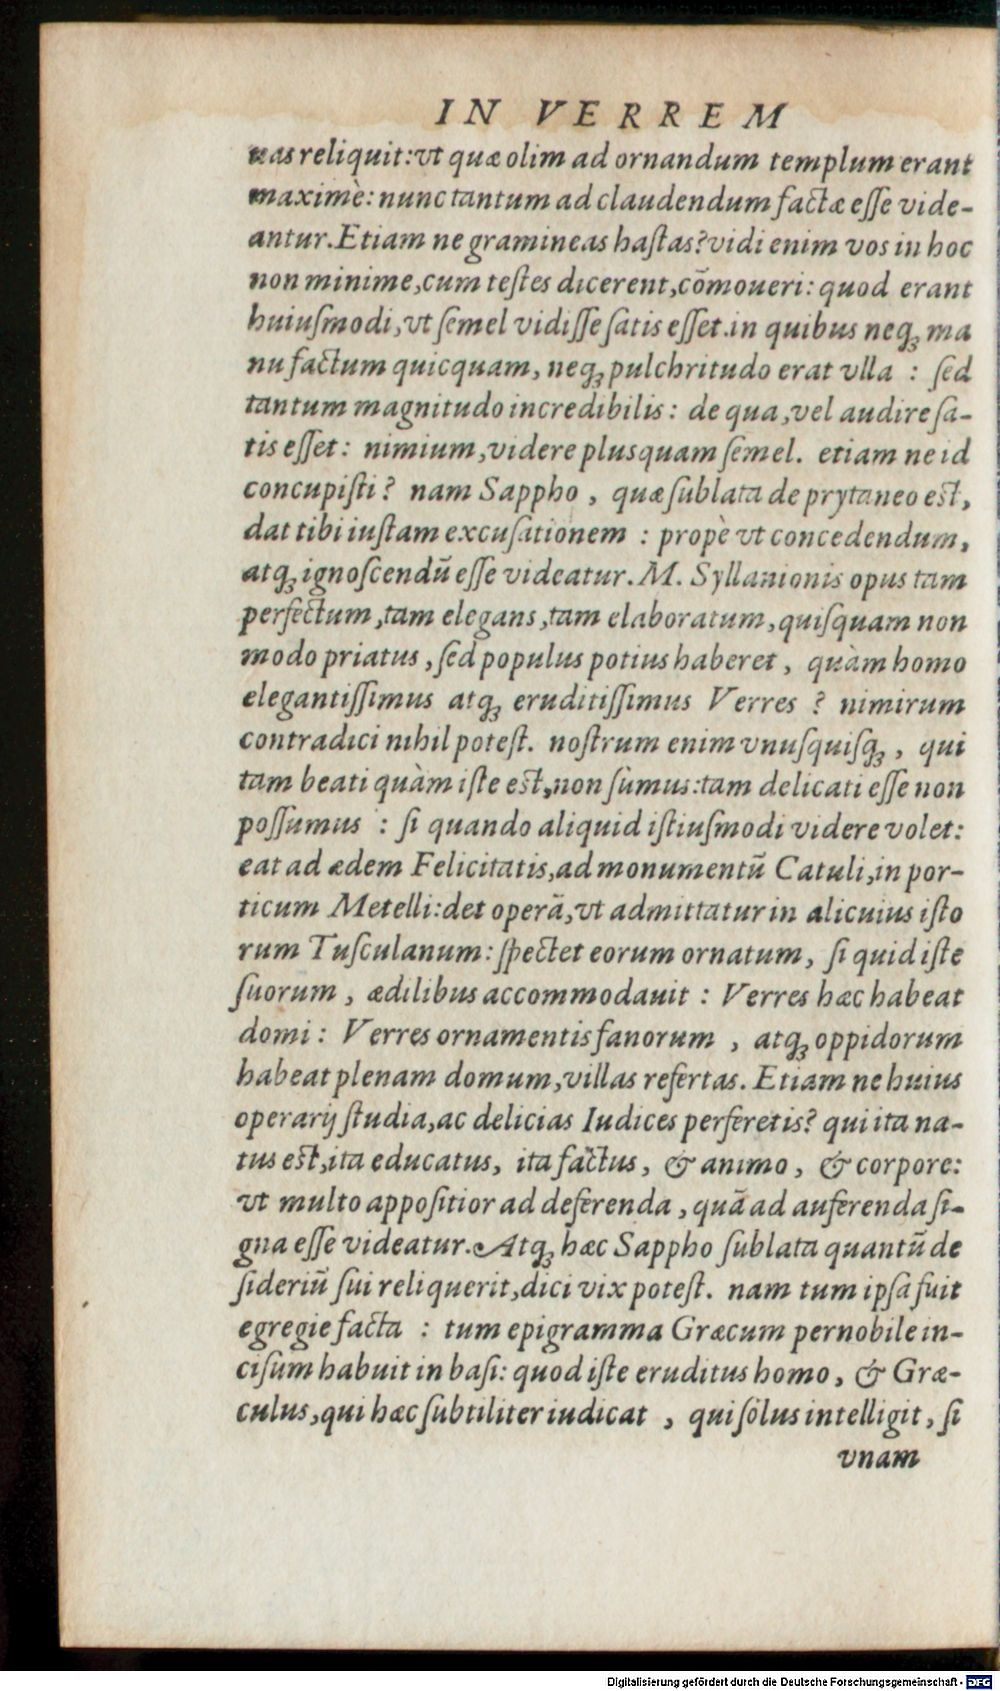 IN VERREM
uas reliquit: vt quæ olim ad ornandum templum erant
maximè: nunc tantum ad claudendum factæ eſſe vide-
antur. Etiam ne gramineas haſtas? vidi enim vos in hoc
non minime, cum teſtes dicerent, cõmoueri: quod erant
huiuſmodi, vt ſemel vidiſſe ſatis eſſet. in quibus neqꝫ ma
nu factum quicquam, neqꝫ pulchritudo erat vlla : ſed
tantum magnitudo incredibilis: de qua, vel audire ſa-
tis eſſet: nimium, videre plusquam ſemel. etiam ne id
concupiſti? nam Sappho, quæ ſublata de prytaneo est,
dat tibi iuſtam excuſationem : propè vt concedendum,
atqꝫ ignoſcendũ eſſe videatur. M. Syllanionis opus tam
perfectum, tam elegans, tam elaboratum, quiſquam non
modo priatus, ſed populus potius haberet, quàm homo
elegantiſſimus atqꝫ eruditiſſimus Verres ? nimirum
contradici nihil poteſt. noſtrum enim vnuſquiſqꝫ, qui
tam beati quàm iſte est, non ſumus: tam delicati eſſe non
poſſumus : ſi quando aliquid iſtiuſmodi videre volet:
eat ad ædem Felicitatis, ad monumentũ Catuli, in por-
ticum Metelli: det operã, vt admittatur in alicuius iſto
rum Tuſculanum: ſpectet eorum ornatum, ſi quid iſte
ſuorum, ædilibus accommodauit : Verres hæc habeat
domi : Verres ornamentis fanorum, atqꝫ oppidorum
habeat plenam domum, villas refertas. Etiam ne huius
operarij ſtudia, ac delicias Iudices perferetis? qui ita na-
tus est, ita educatus, ita factus, & animo, & corpore:
vt multo appoſitior ad deferenda, quã ad auferenda ſi-
gna eſſe videatur. Atqꝫ hæc Sappho ſublata quantũ de
ſideriũ ſui reliquerit, dici vix poteſt. nam tum ipſa fuit
egregie facta : tum epigramma Græcum pernobile in-
ciſum habuit in baſi: quod iſte eruditus homo, & Græ-
culus, qui hæc ſubtiliter iudicat, qui ſolus intelligit, ſi
vnam
Digitalisierung gefördert durch die Deutsche Forschungsgemeinschaft - DFG